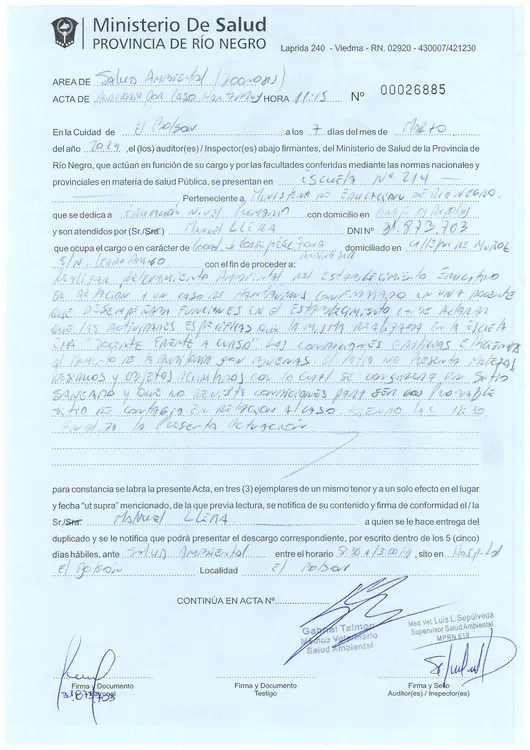 Ministerio De Salud
PROVINCIA DE RÍO NEGRO
Laprida 240 - Viedma - RN. 02920 - 430007/421230
AREA DE Salud Ambiental (Zoonosis)
ACTA DE Auditoria por Caso Hantavirus HORA 11:15 Nº 00026885
En la Cuidad de El Bolson a los 7 días del mes de Marzo
del año 2019 ,el (los) auditor(es)/ Inspector(es) abajo firmantes, del Ministerio de Salud de la Provincia de
Río Negro, que actúan en función de su cargo y por las facultades conferidas mediante las normas nacionales y
provinciales en materia de salud Pública, se presentan en Escuela Nº 214
Perteneciente a Ministerio de Educacion de Rio Negro
que se dedica a Nivel Primario con domicilio en
y son atendidos por (Sr./Sra.) Manuel LLERA DNI Nº 31.873.703
que ocupa el cargo o en carácter de domiciliado en
S/N. con el fin de proceder a:
Realizar Relevamiento Ambiental del Establecimiento Educativo
en relacion a un caso de Hantavirus confirmado en una docente
que desempeñara funciones en el establecimiento. Cabe aclarar
que las actividades especificas que la misma realizaba en la escuela
era "Docente frente a curso". Las condiciones edilicias
al son buenas. El patio no presenta malezas
residuos y objetos acumulados con lo cual se considera un sitio
saneado y que no reviste condiciones para ser un probable
sitio de contagio en relacion al caso. Siendo las
finaliza la presente actuacion
para constancia se labra la presente Acta, en tres (3) ejemplares de un mismo tenor y a un solo efecto en el lugar
y fecha "ut supra" mencionado, de la que previa lectura, se notifica de su contenido y firma de conformidad el / la
Sr./Sra. Manuel LLERA a quien se le hace entrega del
duplicado y se le notifica que podrá presentar el descargo correspondiente, por escrito dentro de los 5 (cinco)
días hábiles, ante Salud Ambiental entre el horario 8:30 a 13:00 h , sito en Hospital
El Bolson Localidad El Bolson
CONTINÚA EN ACTA Nº
Gabriel Talmon
Médico Veterinario
Salud Ambiental
Med. Vet. Luis L. Sepúlveda
Supervisor Salud Ambiental
MPRN 619
Firma y Documento
31.873.703
Firma y Documento
Testigo
Firma y Sello
Auditor(es) / Inspector(es)